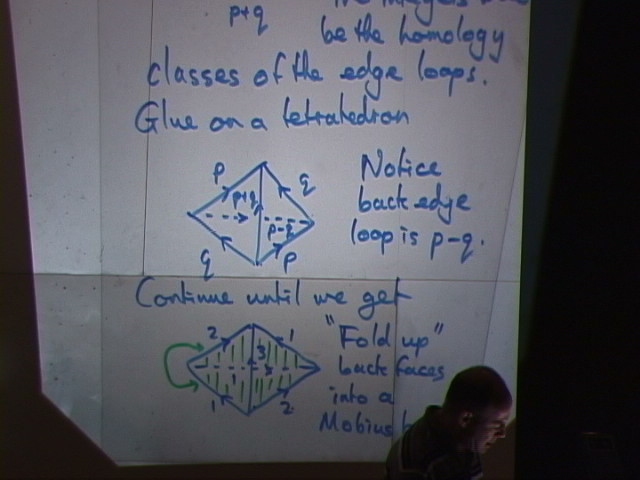 p+q
be the homology
classes of the edge loops.
Glue on a tetrahedron
p
q
p+q
p-q
q
p
Notice
back edge
loop is p-q.
Continue until we get
2
1
3
1
1
2
"Fold up"
back faces
into a
Mobius